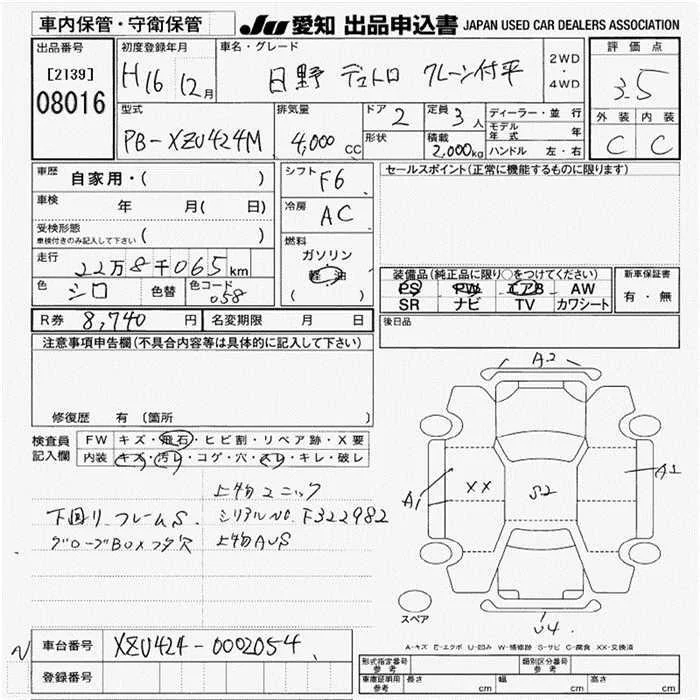 車内保管・守衛保管
JU 愛知 出品申込書 JAPAN USED CAR DEALERS ASSOCIATION
出品番号 [2139] 08016
初度登録年月 H16 12月
車名・グレード 日野 デュトロ クレーン付平
2WD・4WD
評価点 3.5
外装 C 内装 C
型式 PB-XZU424M
排気量 4,000 CC
ドア 2
形状
定員 3 人
積載 2,000 kg
ディーラー・並行
モデル年式 年
ハンドル 左・右
車歴 自家用・( )
車検 年 月( 日)
受検形態 ( )
車検付きのみ記入して下さい
走行 22万8千065 km
色 シロ 色替 色コード 058
シフト F6
冷房 AC
燃料 ガソリン
軽油
( )
セールスポイント(正常に機能するものに限ります)
装備品(純正品に限り○をつけてください)
PS PW エアB AW
SR ナビ TV カワシート
新車保証書 有・無
後日品
R券 8,740 円 名変期限 月 日
注意事項申告欄(不具合内容等は具体的に記入して下さい)
修復歴 有 (箇所
検査員記入欄
FW キズ・飛石・ヒビ割・リペア跡・X要
内装 キズ・汚レ・コゲ・穴・スレ・キレ・破レ
上物ユニック
下回リ フレームS. シリアルNO. F322982
グローブBOXフタ穴 上物AUS
A2
A1 XX S2 A1
U4
スペア
A-キズ E-エクボ U-凹み W-補修跡 S-サビ C-腐食 XX-交換済
車台番号 XZU424-0002054
登録番号
形式指定番号 参考 類別区分番号 参考
車庫証明用 参考 長さ cm 幅 cm 高さ cm